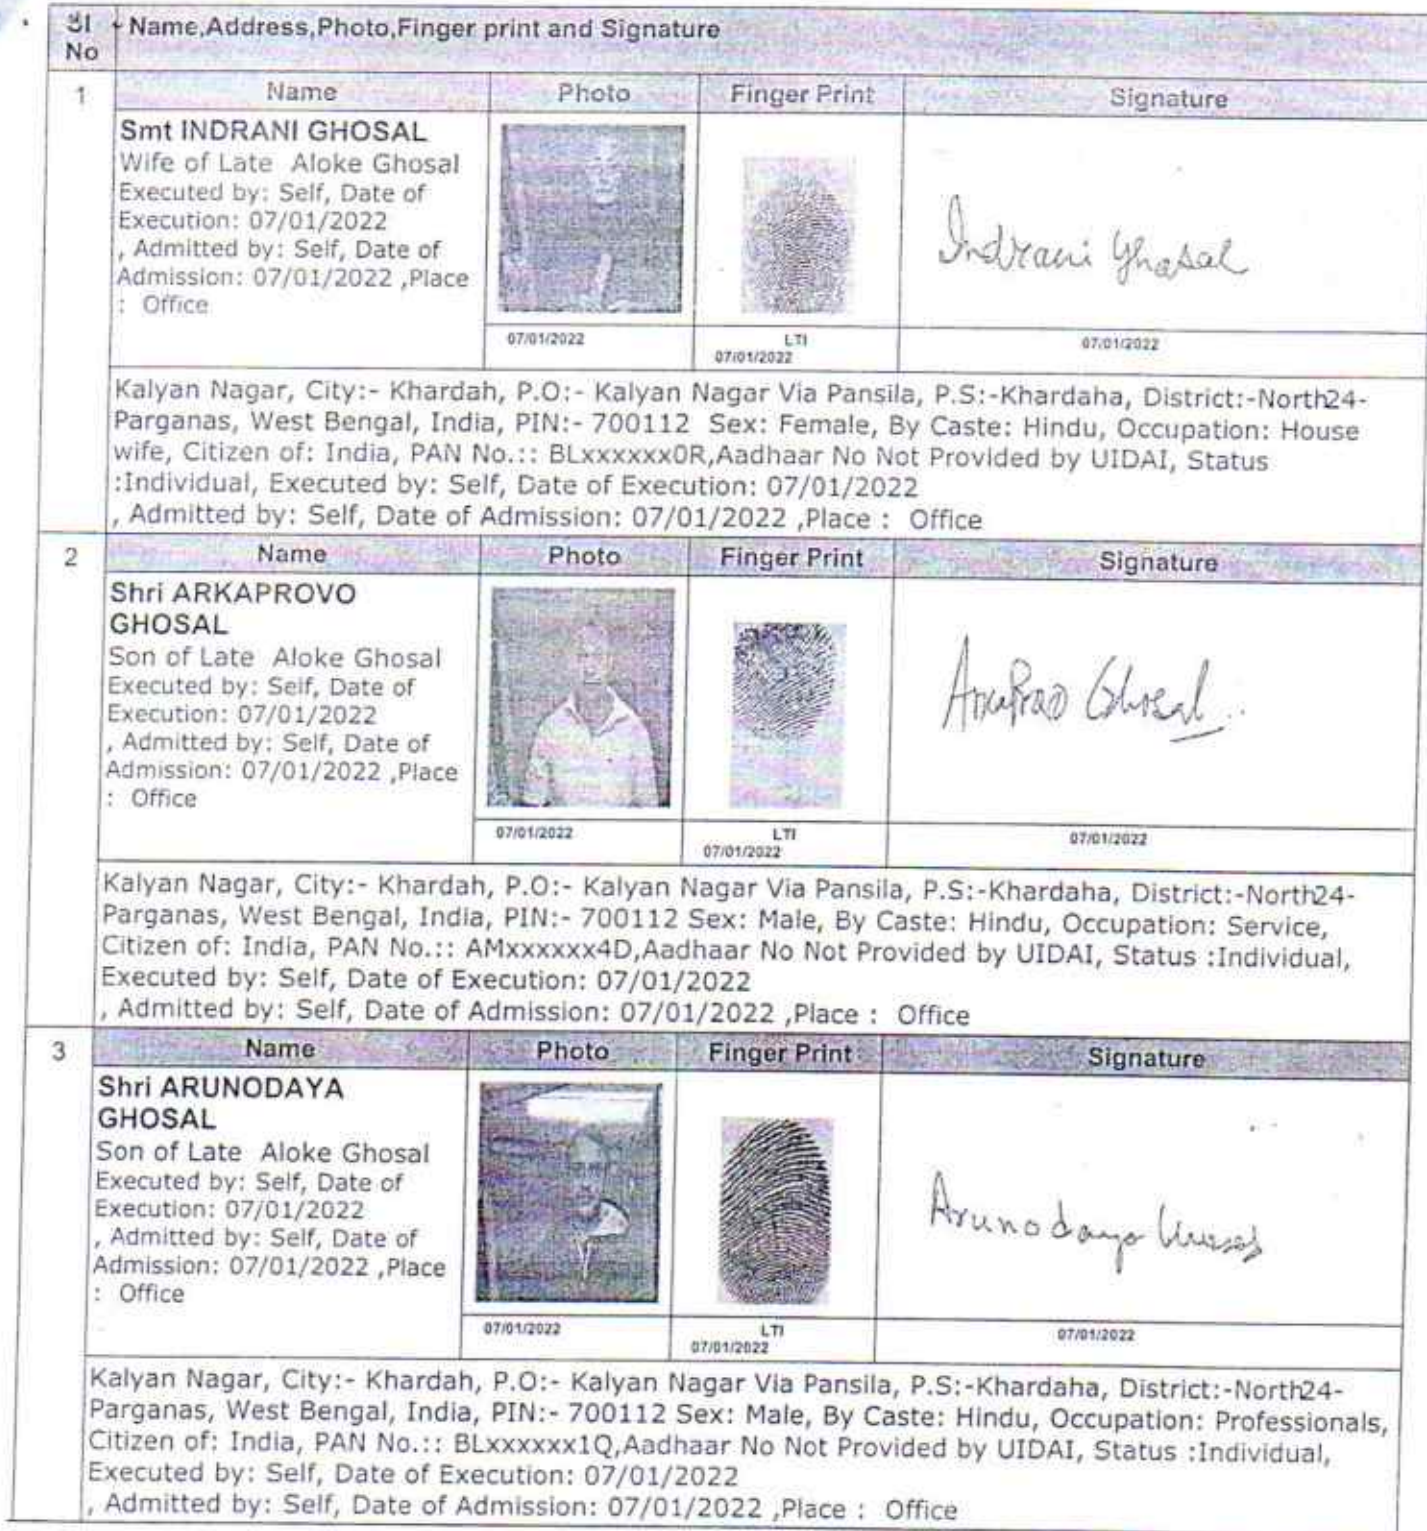 Sl No Name,Address,Photo,Finger print and Signature
1 Name Photo Finger Print Signature
Smt INDRANI GHOSAL
Wife of Late Aloke Ghosal
Executed by: Self, Date of
Execution: 07/01/2022
, Admitted by: Self, Date of
Admission: 07/01/2022 ,Place
: Office
Indrani Ghosal
07/01/2022 LTI 07/01/2022 07/01/2022
Kalyan Nagar, City:- Khardah, P.O:- Kalyan Nagar Via Pansila, P.S:-Khardaha, District:-North24-
Parganas, West Bengal, India, PIN:- 700112 Sex: Female, By Caste: Hindu, Occupation: House
wife, Citizen of: India, PAN No.:: BLxxxxxx0R,Aadhaar No Not Provided by UIDAI, Status
:Individual, Executed by: Self, Date of Execution: 07/01/2022
, Admitted by: Self, Date of Admission: 07/01/2022 ,Place : Office
2 Name Photo Finger Print Signature
Shri ARKAPROVO
GHOSAL
Son of Late Aloke Ghosal
Executed by: Self, Date of
Execution: 07/01/2022
, Admitted by: Self, Date of
Admission: 07/01/2022 ,Place
: Office
Ghosal
07/01/2022 LTI 07/01/2022 07/01/2022
Kalyan Nagar, City:- Khardah, P.O:- Kalyan Nagar Via Pansila, P.S:-Khardaha, District:-North24-
Parganas, West Bengal, India, PIN:- 700112 Sex: Male, By Caste: Hindu, Occupation: Service,
Citizen of: India, PAN No.:: AMxxxxxx4D,Aadhaar No Not Provided by UIDAI, Status :Individual,
Executed by: Self, Date of Execution: 07/01/2022
, Admitted by: Self, Date of Admission: 07/01/2022 ,Place : Office
3 Name Photo Finger Print Signature
Shri ARUNODAYA
GHOSAL
Son of Late Aloke Ghosal
Executed by: Self, Date of
Execution: 07/01/2022
, Admitted by: Self, Date of
Admission: 07/01/2022 ,Place
: Office
Arunodaya
07/01/2022 LTI 07/01/2022 07/01/2022
Kalyan Nagar, City:- Khardah, P.O:- Kalyan Nagar Via Pansila, P.S:-Khardaha, District:-North24-
Parganas, West Bengal, India, PIN:- 700112 Sex: Male, By Caste: Hindu, Occupation: Professionals,
Citizen of: India, PAN No.:: BLxxxxxx1Q,Aadhaar No Not Provided by UIDAI, Status :Individual,
Executed by: Self, Date of Execution: 07/01/2022
, Admitted by: Self, Date of Admission: 07/01/2022 ,Place : Office